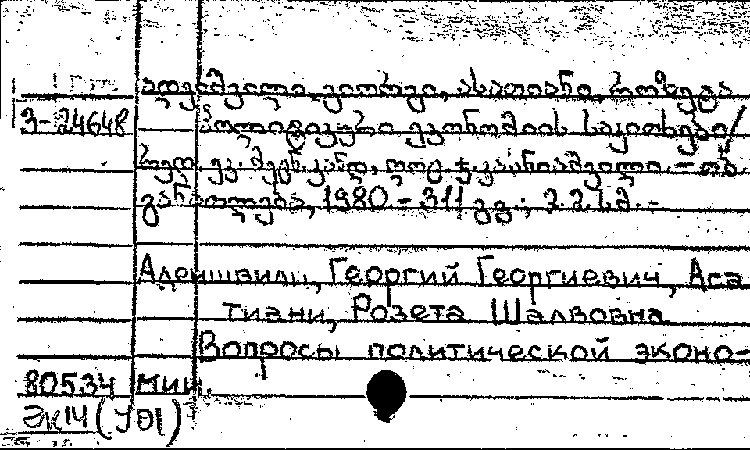 ალეიშვილი, გიორგი, ასათიანი, როზეტა
3-24648 პოლიტიკური ეკონომიის საკითხები/
რედ. ეკ. მეცნ. კანდ. დოც. — თბ.
განათლება, 1980 - 311 გვ.; 22 სმ. -
Алеишвили, Георгий Георгиевич, Аса
тиани, Розета Шалвовна
Вопросы политической эконо-
80534 мии.